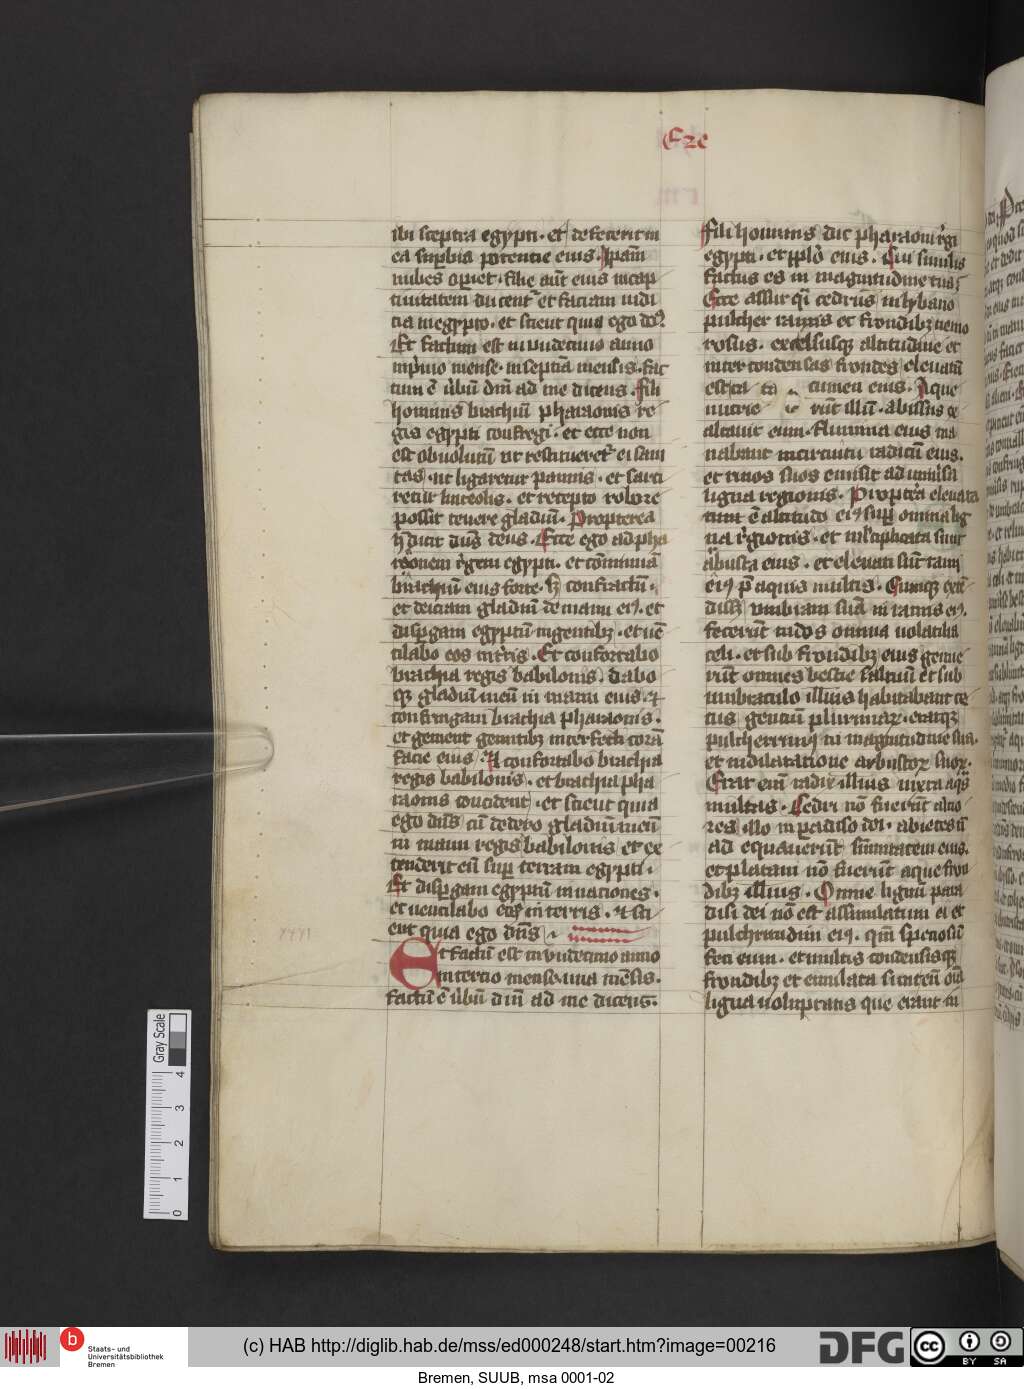 Eze
ibi sceptra egypti. et defecerit in
ea superbia potentie eius. Ipsam
nubes operiet. filie aut eius in cap
tiuitatem ducentr et faciam iudi
cia in egypto. et scient quia ego dns
Et factum est in undecimo anno
in primo mense. in septia mensis. fac
tum e ubu dni ad me dicens. fili
hominis brachiu pharaonis re
gis egypti confregi. et ecce non
est obuolutu ut restitueret ei sani
tas. ut ligaretur pannis. et farci
retur linteolis. et recepto robore
possit tenere gladiu. Propterea
h dicit dns deus. Ecce ego ad pha
raonem regem egypti. et cominua
brachiu eius forte. sz confractu.
et deiciam gladiu de manu ei9. et
dispgam egyptu in gentibz. et ue
tilabo eos in tris. Et confortabo
brachia regis babilonis. dabo
qz gladiu meu in manu eius. et
confringam brachia pharaonis.
et gement gemitibz interfecti cora
facie eius. Et confortabo brachia
regis babilonis. et brachia pha
raonis concident. et scient quia
ego dns cu dedero gladiu meu
in manu regis babilonis et ex
tenderit eu sup terram egypti.
Et dispgam egyptu in naciones.
et uentilabo eos in terris. et sci
ent quia ego dns
Et factu est in undecimo anno
in tercio mense. una mesis.
factu e ubu dni ad me dicens.
Fili hominis dic pharaoni regi
egypti. et pplo eius. Cui similis
factus es in magnitudine tua
Ecce assur qi cedrus in lybano
pulcher ramis et frondibz nemo
rosus. excelsusqz altitudine et
inter condensas frondes eleuatu
est ca cumen eius. Aque
nutrie rut illu. abissus ex
altauit eum. flumina eius ma
nabant in circuitu radicu eius.
et riuos suos emisit ad uniusa
ligna regionis. Propterea eleuata
e altitudo ei9 sup omnia lig
na regionis. et mltiplicata sunt
abusta eius. et eleuati sut rami
ei9 p aquis multis. Cumqz exte
disset umbram sua in ramis ei9.
fecerut nidos omnia uolatilia
celi. et sub frondibz eius genue
rut omnes bestie saltuu et sub
umbraculo illius habitabant ce
tus gentiu plurimaz. eratqz
pulcherrim9 in magnitudine sua.
et in dilatatione arbustoz suoz.
Erat eni radix illius iuxta aqs
multas. Cedri no fuerut altio
res illo in padiso dei. abietes n
ad equauerut sumitatem eius.
et platani no fuerut aque fron
dibz illius. Omne lignu para
disi dei no est assimulatum ei et
pulchritudini ei9. qm speciosu
feci eum. et multis condensisqz
frondibz et emulata sunt eu oia
ligna uoluptatis que erant in
Gray Scale
4
3
2
1
0
b
Staats- und
Universitätsbibliothek
Bremen
(c) HAB http://diglib.hab.de/mss/ed000248/start.htm?image=00216
DFG
cc
BY SA
Bremen, SUUB, msa 0001-02